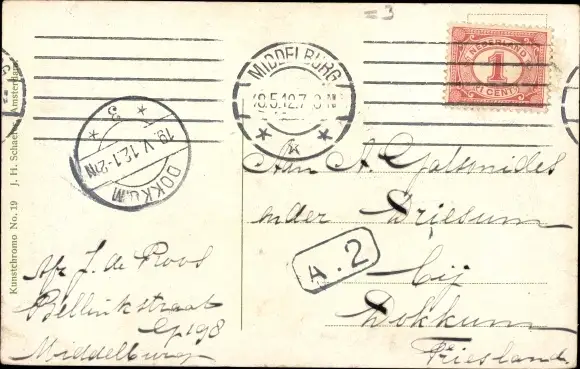 = 3
NEDERLAND
1
1 CENT
MIDDELBURG
18.5.12.7-8 N
19.V.12.1-2N
DOKKUM
3
Kunstchromo No. 19 J. H. Schaefer, Amsterdam
Aan A.
onder Driesum
A.2
bij
Dokkum
Friesland
Afz J. de Roos
Bellinkstraat
G 198
Middelburg